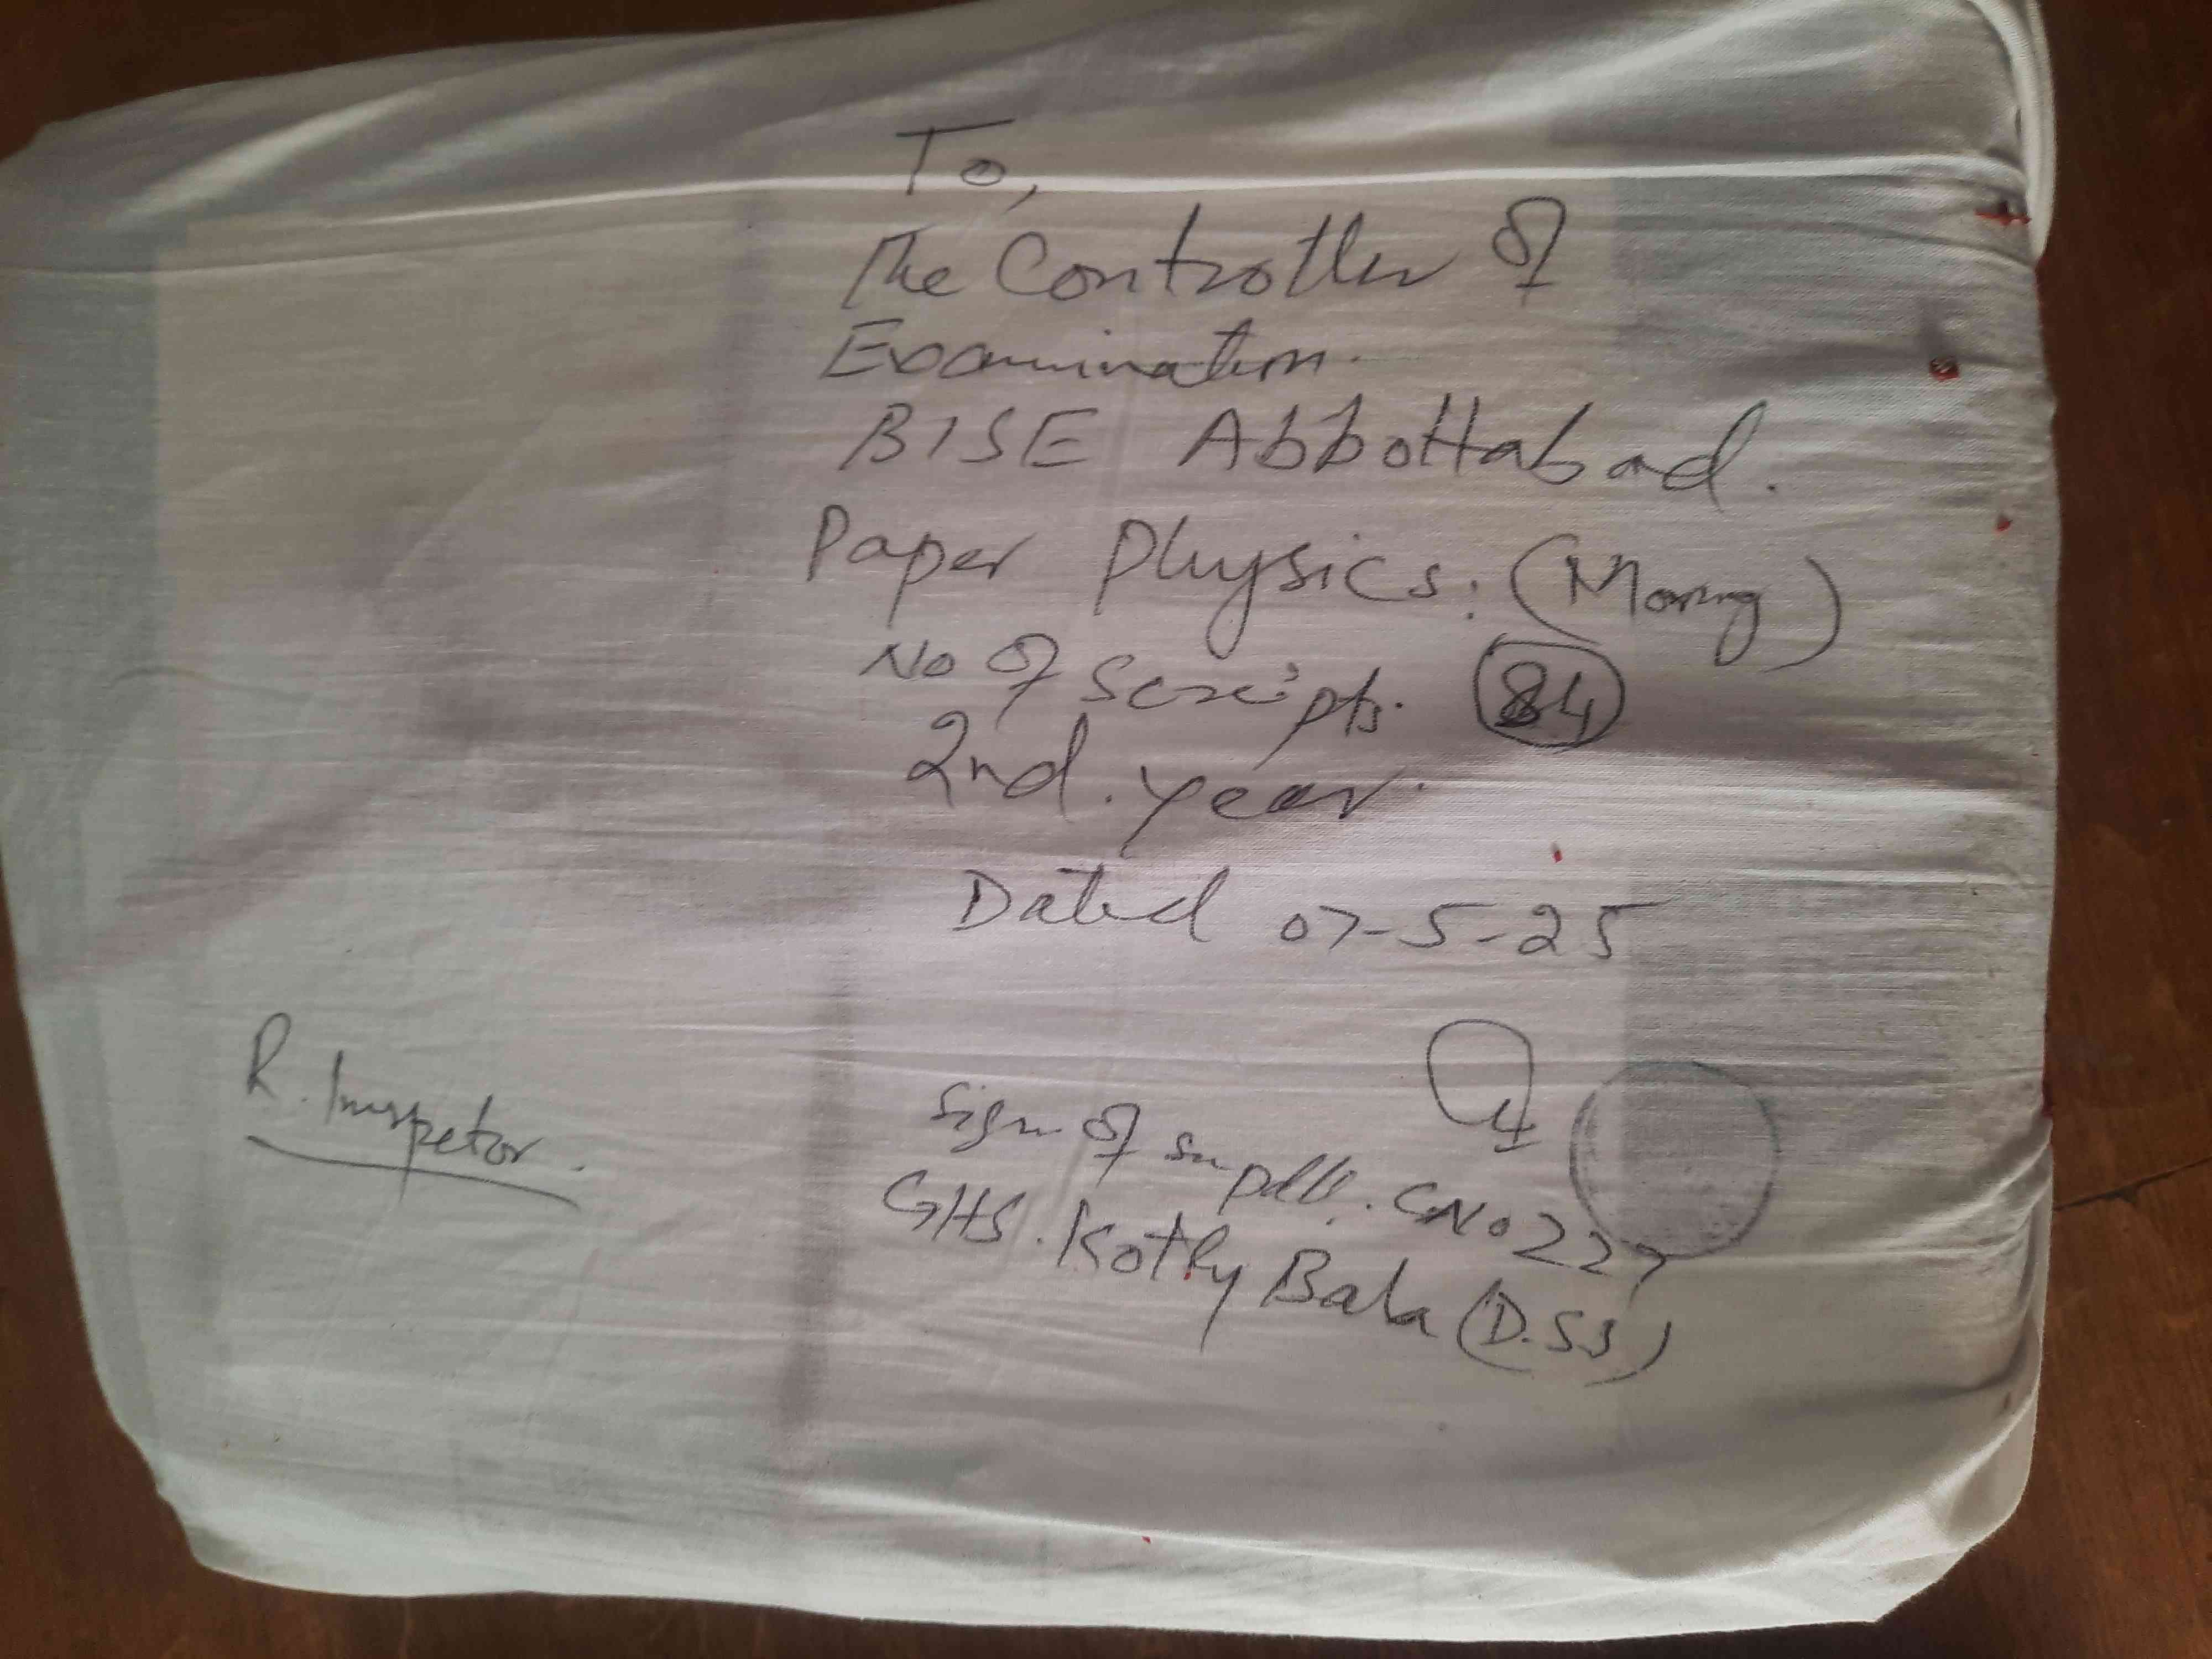 To,
The Controller of
Examination.
BISE Abbottabad.
Paper Physics: (Morning)
No of Scripts. 84
2nd. year.
Dated 07-5-25
Sign of Supdtt. CNo 227
GHS. Kotly Bala (D.SS)
R. Inspetor.